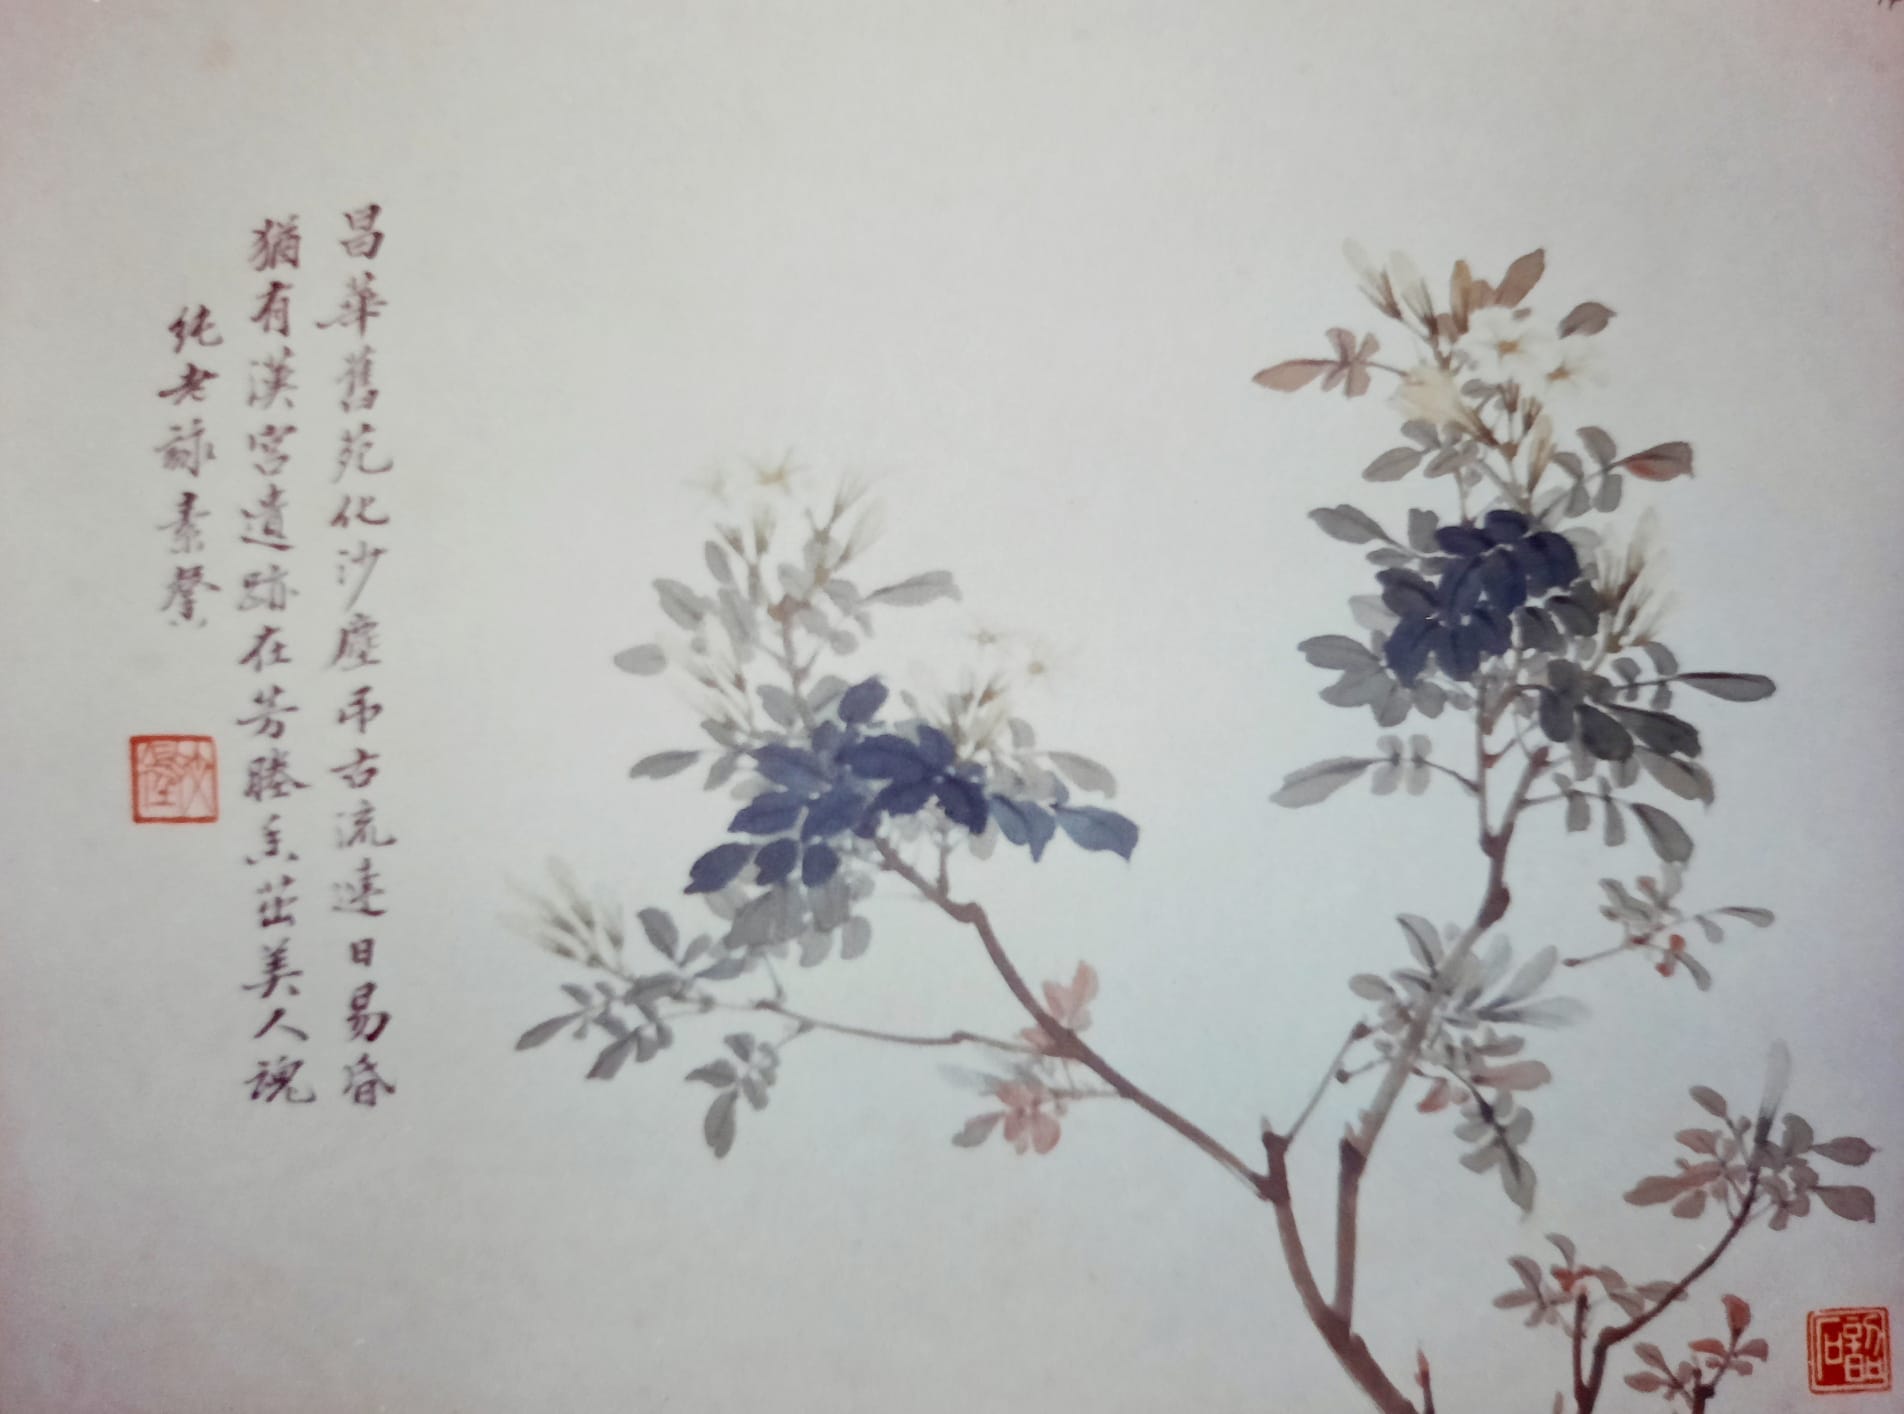 昌華舊苑化沙塵吊古流連日易昏
猶有漢宮遺跡在芳塍香茁美人魂
純老詠素馨